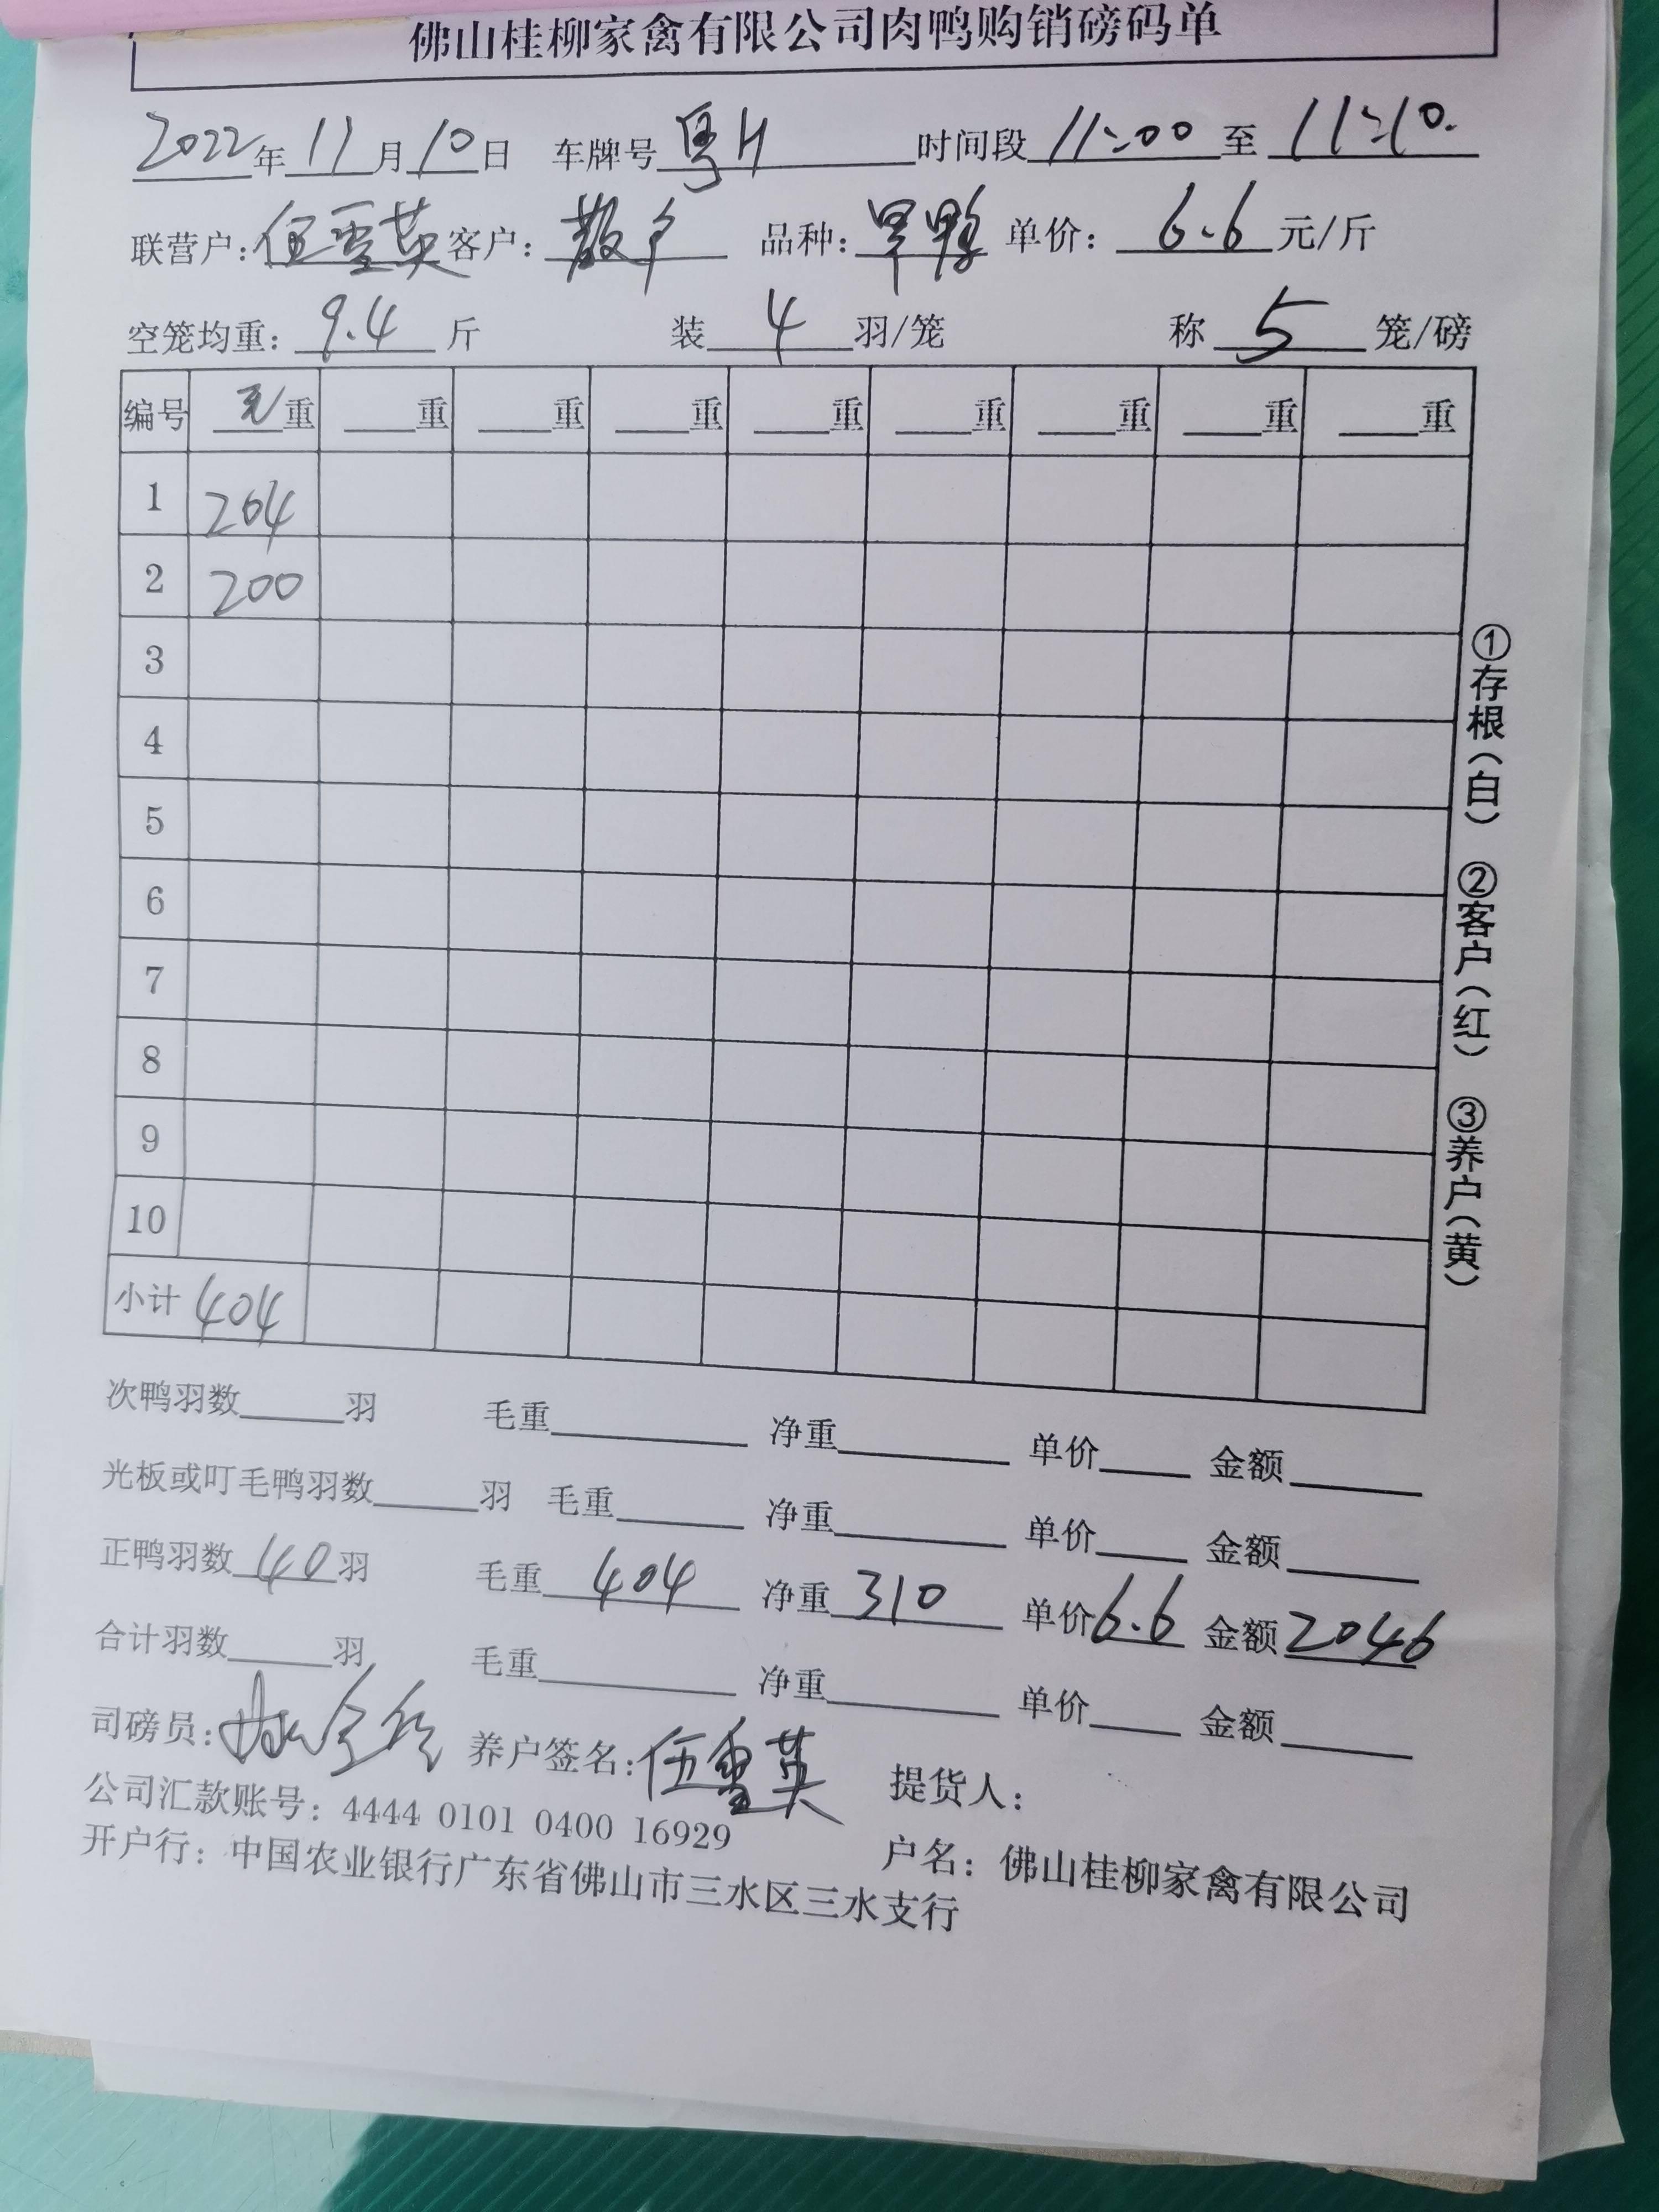 佛山桂柳家禽有限公司肉鸭购销磅码单
2022年11月10日 车牌号粤H 时间段11:00至11:10.
联营户:伍雪英 客户:散户 品种:旱鸭 单价:6.6元/斤
空笼均重:9.4斤 装4羽/笼 称5笼/磅
编号 毛重 重 重 重 重 重 重 重 重
1 204
2 200
3
4
5
6
7
8
9
10
小计 404
①存根(白) ②客户(红) ③养户(黄)
次鸭羽数 羽 毛重 净重 单价 金额
光板或叮毛鸭羽数 羽 毛重 净重 单价 金额
正鸭羽数40羽 毛重404 净重310 单价6.6 金额2046
合计羽数 羽 毛重 净重 单价 金额
司磅员: 养户签名:伍雪英 提货人:
公司汇款账号: 4444 0101 0400 16929 户名: 佛山桂柳家禽有限公司
开户行: 中国农业银行广东省佛山市三水区三水支行